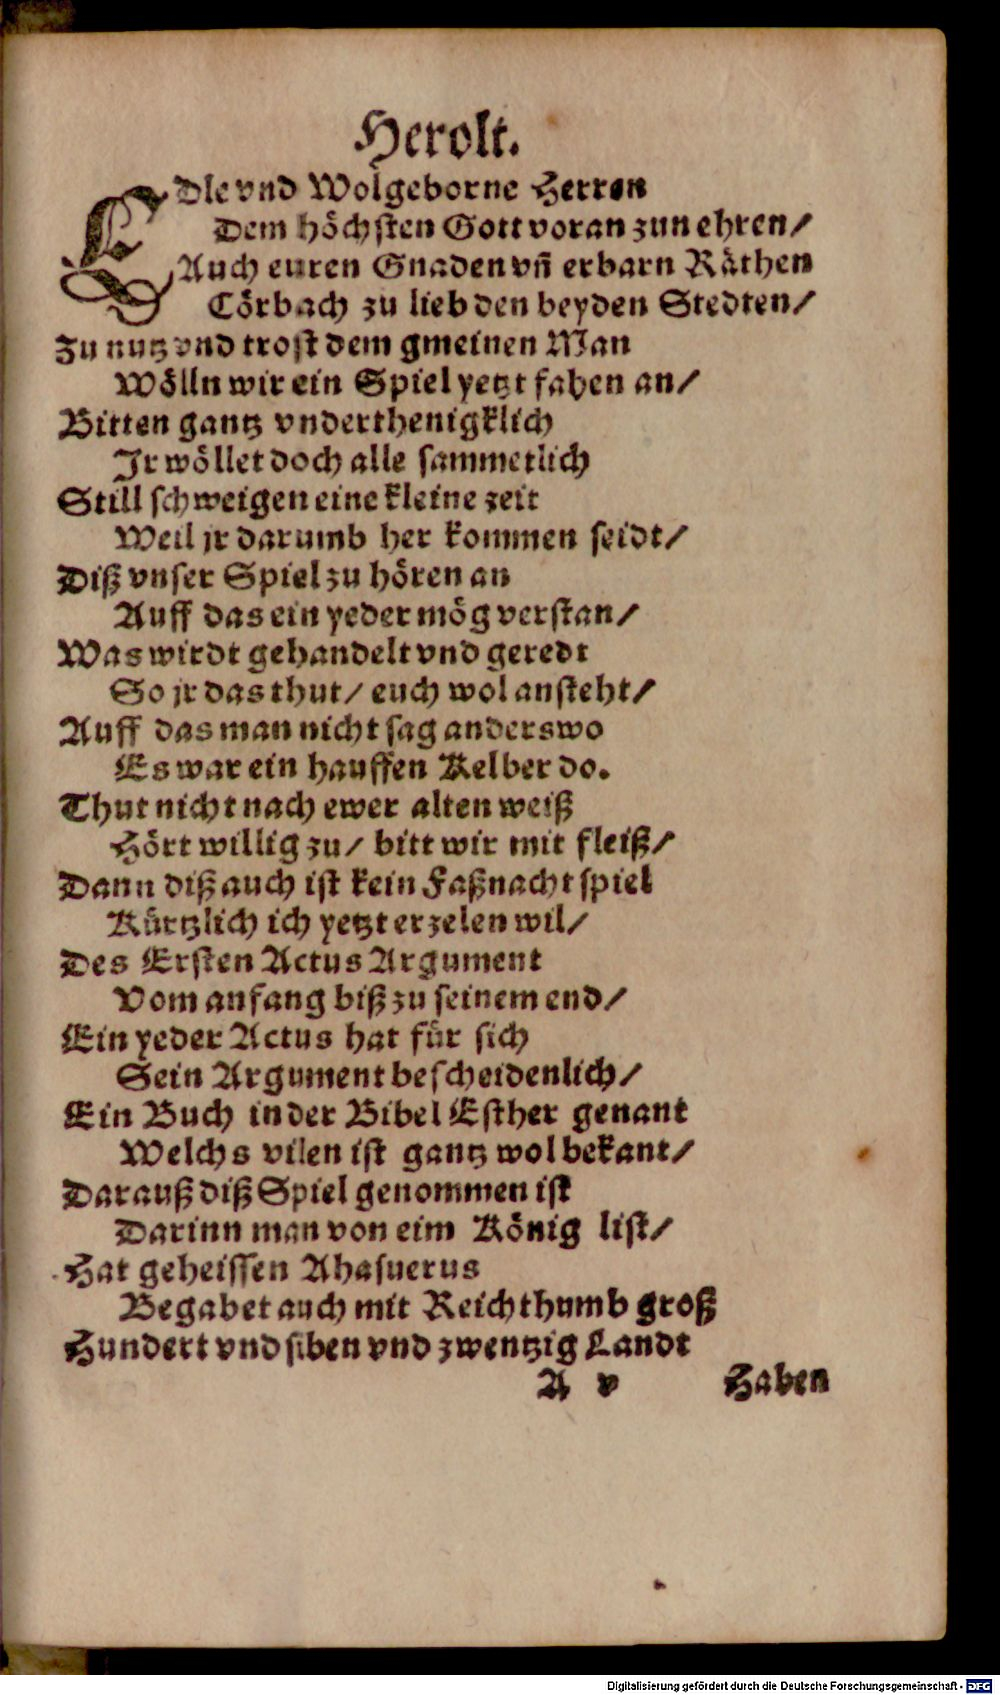 Herolt.
EDle vnd Wolgeborne Herren
Dem höchsten Gott voran zun ehren/
Auch euren Gnaden vñ erbarn Räthen
Cörbach zu lieb den beyden Stedten/
Zu nutz vnd trost dem gmeinen Man
Wölln wir ein Spiel yetzt fahen an/
Bitten gantz vnderthenigklich
Jr wöllet doch alle sammetlich
Still schweigen eine kleine zeit
Weil jr darumb her kommen seidt/
Diß vnser Spiel zu hören an
Auff das ein yeder mög verstan/
Was wirdt gehandelt vnd geredt
So jr das thut/ euch wol ansteht/
Auff das man nicht sag anderswo
Es war ein hauffen Kelber do.
Thut nicht nach ewer alten weiß
Hört willig zu/ bitt wir mit fleiß/
Dann diß auch ist kein Faßnacht spiel
Kürtzlich ich yetzt erzelen wil/
Des Ersten Actus Argument
Vom anfang biß zu seinem end/
Ein yeder Actus hat für sich
Sein Argument bescheidenlich/
Ein Buch in der Bibel Esther genant
Welchs vilen ist gantz wol bekant/
Darauß diß Spiel genommen ist
Darinn man von eim König list/
Hat geheissen Ahasuerus
Begabet auch mit Reichthumb groß
Hundert vnd siben vnd zwentzig Landt
A v Haben
Digitalisierung gefördert durch die Deutsche Forschungsgemeinschaft - DFG